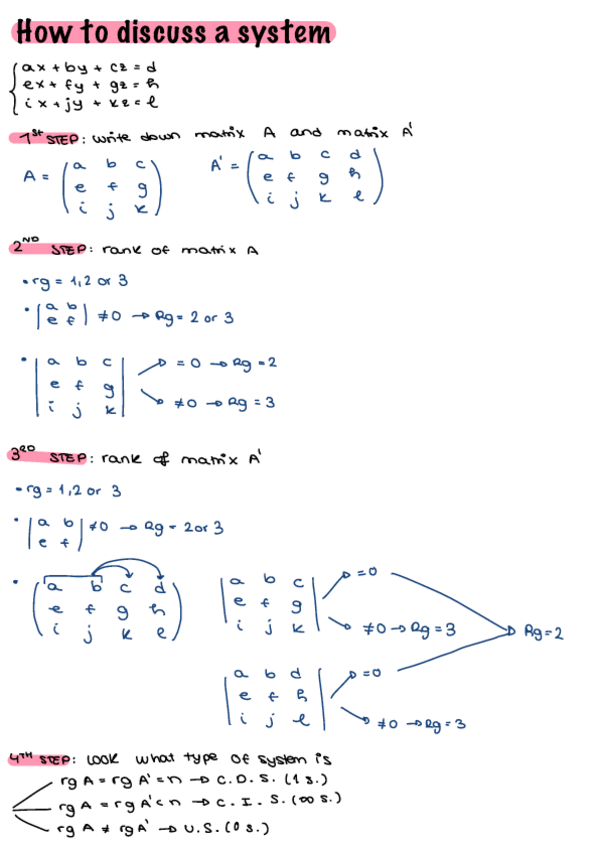 How to discuss a system
ax + by + cz = d
ex + fy + gz = h
ix + jy + kz = l
1ST STEP: write down matrix A and matrix A'
A = ( a b c   A' = ( a b c d
e f g   e f g h
i j k )   i j k l )
2ND STEP: rank of matrix A
• rg = 1, 2 or 3
• | a b
e f | ≠0 → Rg = 2 or 3
• | a b c   → = 0 → Rg = 2
e f g
i j k |   → ≠0 → Rg = 3
3RD STEP: rank of matrix A'
• rg = 1, 2 or 3
• | a b
e f | ≠0 → Rg = 2 or 3
• ( a b c d   | a b c   → =0
e f g h   e f g
i j k l )   i j k |   → ≠0 → Rg = 3   → Rg = 2
| a b d   → =0
e f h
i j l |   → ≠0 → Rg = 3
4TH STEP: look what type of system is
rg A = rg A' = n → C.D.S. (1 s.)
rg A = rg A' < n → C.I.S. (∞ s.)
rg A ≠ rg A' → U.S. (0 s.)